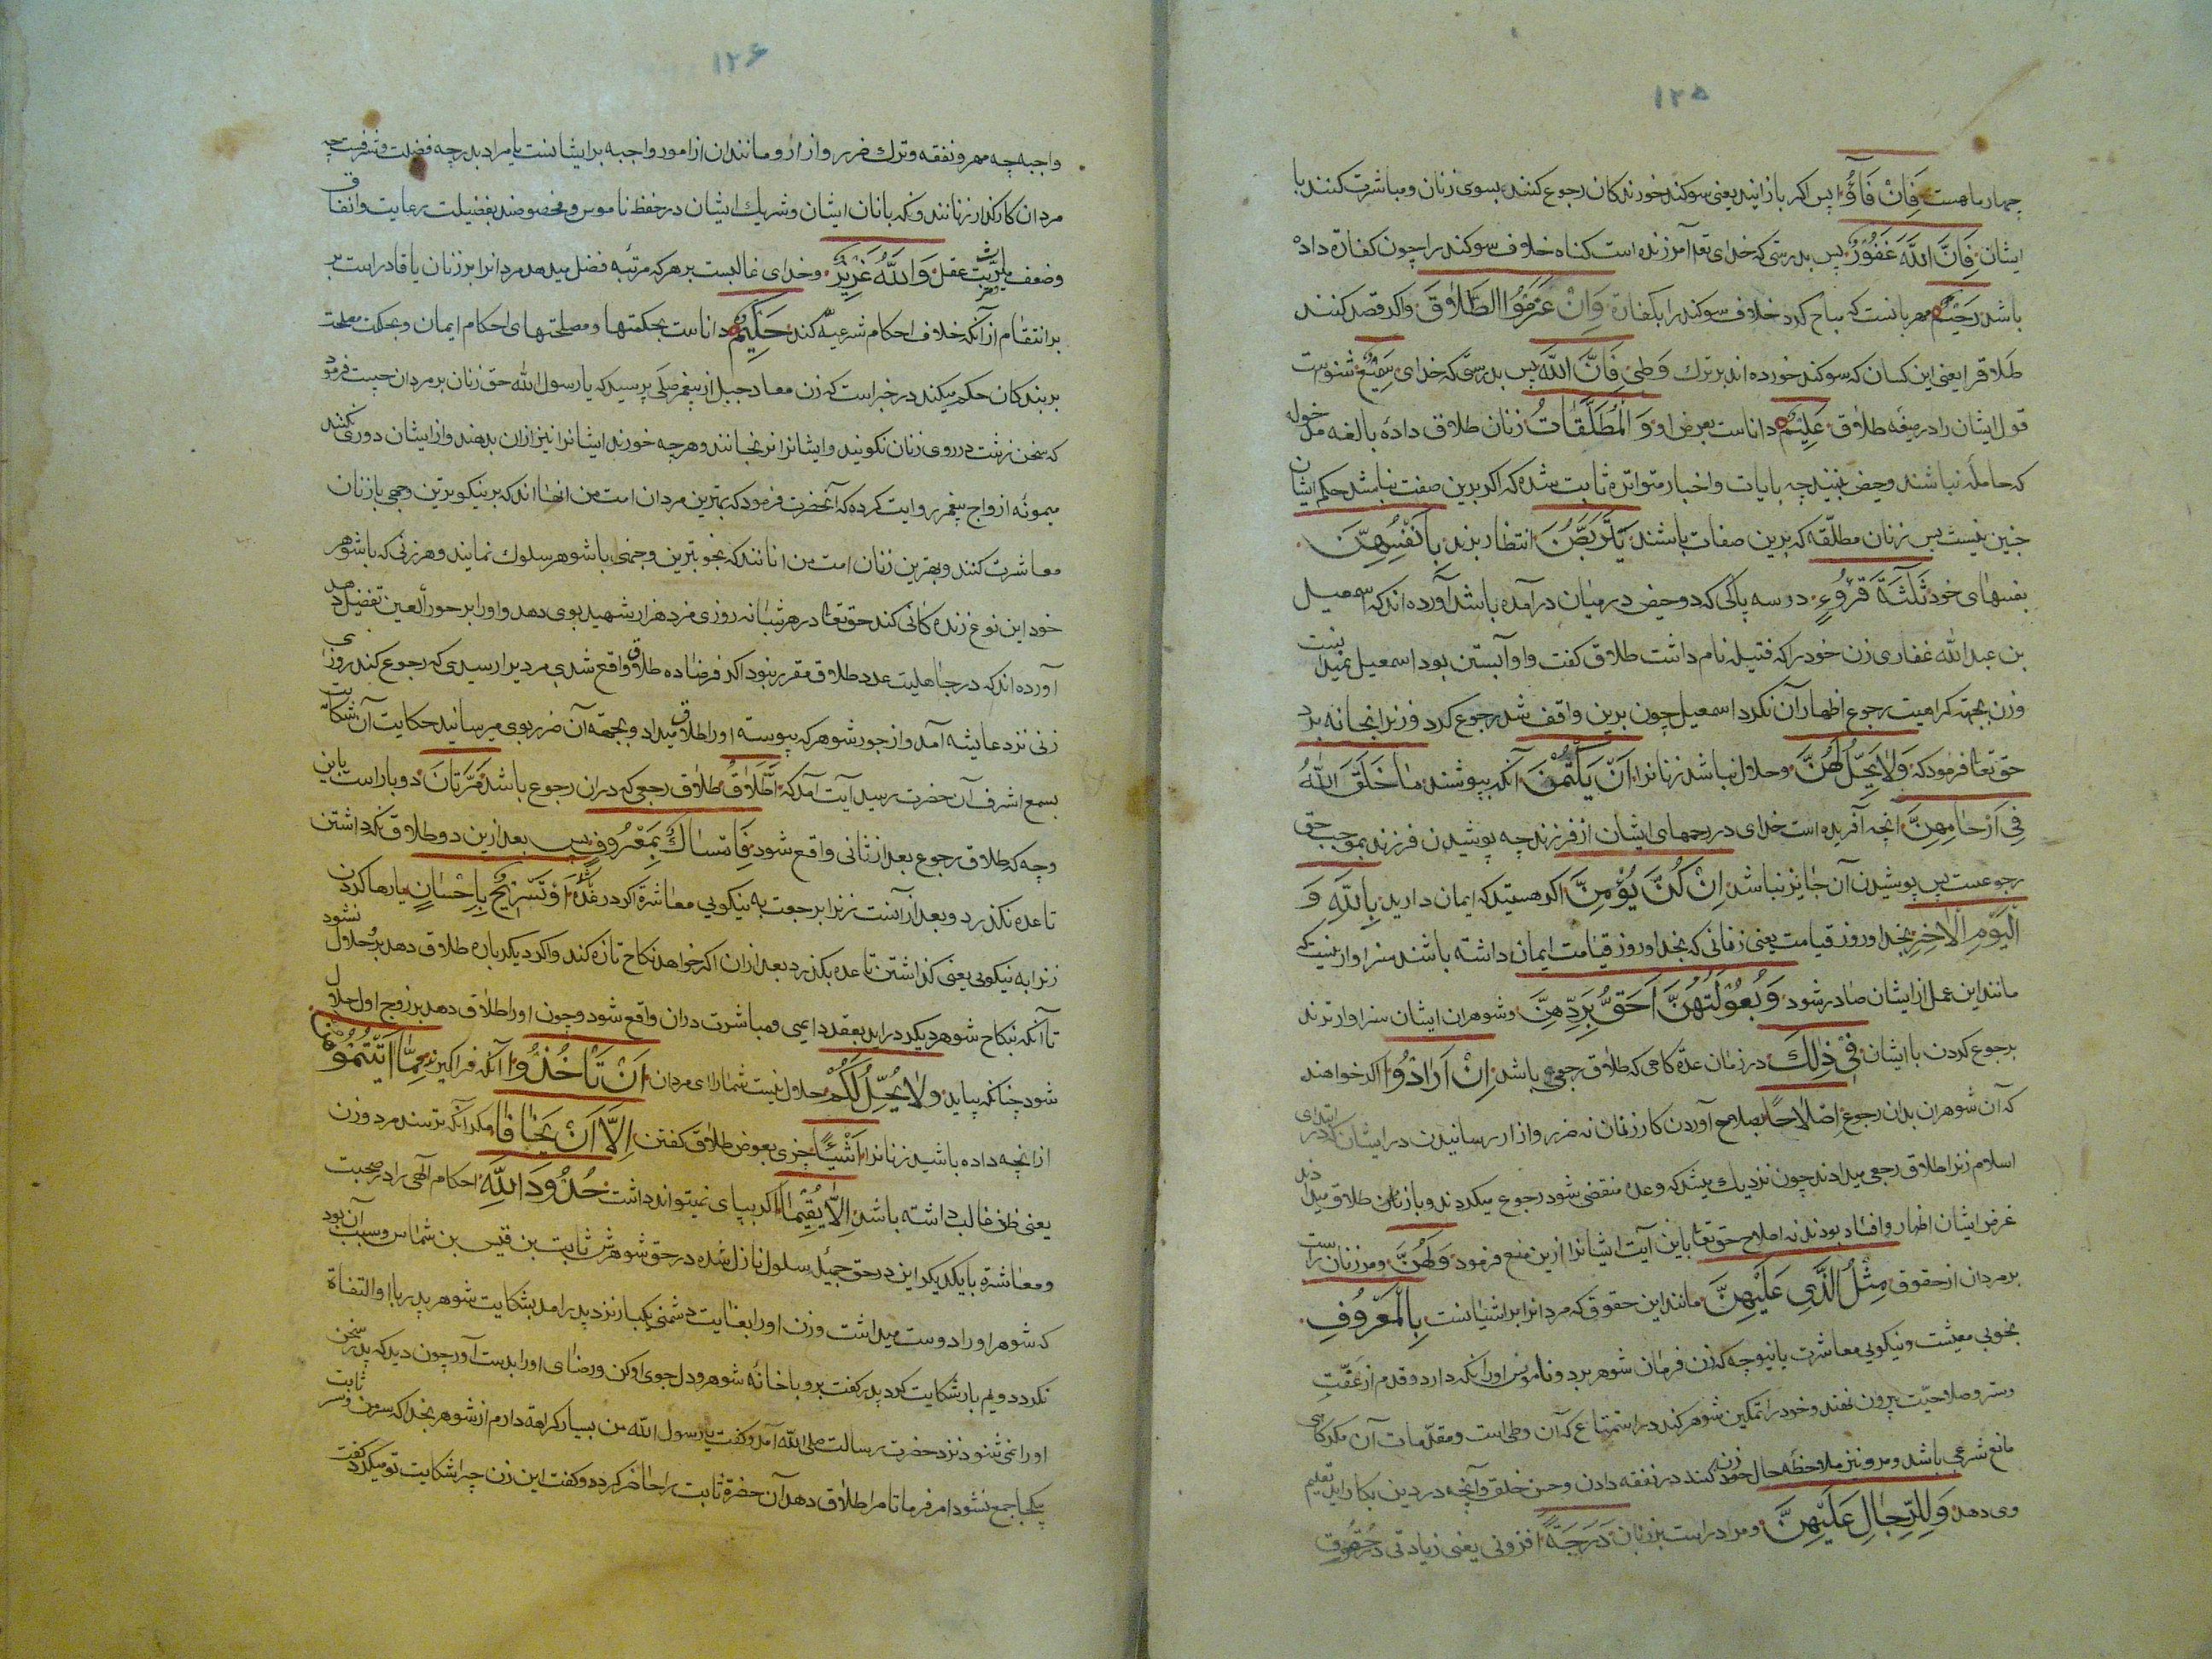 ۱۲۵
چهار ماهست فَاِنْ فَآؤُ پس اکر باز ایند یعنی سوکند خورندکان رجوع کنند بسوی زنان و مباشرت کنند با
ایشان فَاِنَّ اللّٰهَ غَفُوْرٌ پس بدرستی که خدای تعا آمرزنده است کناه خلاف سوکند را چون کفارة داد
باشد رَحیْمٌ مهربانست که مباح کرد خلاف سوکند را بکفارة وَاِنْ عَزَمُوا الطَّلَاقَ واکر قصد کنند
طلاق را یعنی این کسان که سوکند خورده اند بر ترک وطی فَاِنَّ اللّٰهَ پس بدرستی که خدای سَمِیْعٌ شنواست
قول ایشان را در صیغه طلاق عَلِیْمٌ داناست بغرض او وَالْمُطَلَّقٰاتُ زنان طلاق داده بالغه مدخوله
که حامله نباشند وحیض بینند چه بایات واخبار متواتره ثابت شده که اکر برین صفت نباشند حکم ایشان
چنین نیست پس زنان مطلّقه که برین صفات باشند یَتَرَبَّصْنَ انتظار برند بِاَنْفُسِهِنَّ
بنفسهای خود ثَلٰثَةَ قُرُوْءٍ در سه پاکی که دو حیض در میان درآمده باشد آورده اند که اسمعیل
بن عبد اللّٰه غفاری زن خود را که قتیله نام داشت طلاق کفت واو آبستن بود اسمعیل نمیدانست
وزن بجهته کراهیت رجوع اظهار آن نکرد اسمعیل چون برین واقف شد رجوع کرد وزنرا بخانه برد
حق تعا فرمود که وَلَا یَحِلُّ لَهُنَّ وحلال نباشد زنانرا اَنْ یَکْتُمْنَ آنکه بپوشند مٰا خَلَقَ اللّٰهُ
فِی اَرْحٰامِهِنَّ انچه آفریده است خدای در رحمهای ایشان از فرزند چه پوشیدن فرزند بموجب حق
رجوعست پس پوشیدن آن جایز نباشد اِنْ کُنَّ یُؤْمِنَّ اکر هستند که ایمان دارید بِاللّٰهِ وَ
الْیَوْمِ الْاٰخِرِ بخدا وروز قیامت یعنی زنانی که بخدا وروز قیامت ایمان داشته باشند سزاوار نیست که
مانند این عمل از ایشان صادر شود وَبُعُوْلَتُهُنَّ اَحَقُّ بِرَدِّهِنَّ وشوهران ایشان سزاوارترند
برجوع کردن با ایشان فِیْ ذٰلِکَ در زمان عدّه کاهی که طلاق رجعی باشد اِنْ اَرَادُوْا اکر خواهند
که آن شوهران بدان رجوع اِصْلَاحًا بصلاح آوردن کار زنان نه ضرر وازار رسانیدن در ایشان که در ابتدای
اسلام زنرا طلاق رجعی میدادند چون نزدیک میشد که وعده منقضی شود رجوع میکردند وباز زنان طلاق میدادند
غرض ایشان اظهار وافتاد بودند نه اصلاح حق تعا باین آیت ایشانرا ازین منع فرمود وَلَهُنَّ ومر زنان راست
بر مردان از حقوق مِثْلُ الَّذِی عَلَیْهِنَّ مانند این حقوق که مردانرا بر ایشانست بِالْمَعْرُوفِ
بخوبی معیشت ونیکویی معاشرت بانوچه که زن فرمان شوهر برد وناموس اورا نکه دارد وقدم از عفّتِ
وستر وصلاحیّت بیرون نهند وخود را تمکین شوهر کند در استمتاع که آن وطی است ومقدّمات آن مکر کاهی
مانع شرعی باشد ومرد نیز ملاحظهٔ حال خود زن کند در نفقه دادن وحسن خلق وآنچه در دین بکار اید تعلیم
وی دهد وَلِلرِّجَالِ عَلَیْهِنَّ ومر مردراست بر زنان دَرَجَةٌ افزونی یعنی زیادتی در حقوق
۱۲۶
واجبه چه مهر ونفقه وترک ضرر وازار ومانند ان از امور واجبه بر ایشانست یا مراد بدرجه فضیلت وشرفست چه
مردان کارکذار زنانند ونکهبانان ایشان وشریک ایشان در حفظ ناموس ومخصوصند بفضیلت رعایت وانفاق
وضعف میراث عقل وَاللّٰهُ عَزِیْزٌ وخدای غالبست بر هر که مرتبه فضل میدهد مردانرا بر زنان یا قادر است بر
بر انتقام از آنکه خلاف احکام شرعیّه کند حَکِیْمٌ داناست بحکمتها ومصلحتهای احکام ایمان وبحکمت مصلحت
بر بندکان حکم میکند در خبر است که زن معاد جبل از پیغمبر صلی پرسید که یا رسول اللّٰه حق زنان بر مردان چیست فرمود
که سخن زشت در روی زنان نکویند وایشانرا نرنجانند وهرچه خورند ایشانرا نیز ازان بدهند واز ایشان دوری نکنند
میمونه ازواج پیغمبر روایت کرده که آنحضرت فرمود که بهترین مردان امت من انها اند که بر نیکوترین وجهی با زنان
معاشرت کنند وبهترین زنان امت من انانند که بخوبترین وجهی با شوهر سلوک نمایند وهر زنی که با شوهر
خود این نوع زنده کانی کند حق تعا در هر شبانه روزی مزد هزار شهید بوی دهد واورا بر حور العین تفضیل دهد
آورده اند که در جاهلیت عدد طلاق مقرر نبود اکر فرضا ده طلاق واقع شدی مرد را رسیدی که رجوع کند روزی
زنی نزد عایشه آمد واز جور شوهر که پیوسته اورا طلاق میداد وبجهته آن ضرر بوی میرسانید حکایت آن شکایت
بسمع اشرف آن حضرت رسید آیت آمد که اَلطَّلَاقُ طلاق رجعی که در ان رجوع باشد مَرَّتَانَ دو باراست باین
وچه که طلاق رجوع بعد از ثانی واقع شود فَاِمْسٰاکٌ بِمَعْرُوفٍ پس بعد ازین دو طلاق نکه داشتن
تا عده نکذرد وبعد ازآنست زنرا برجعت به نیکویی معاشرة اکر در عدّه اَوْ تَسْرِیْحٌ بِاِحْسٰانٍ یا رها کردن
زنرا به نیکویی یعنی کذاشتن تا عده بکذرد بعد ازان اکر خواهد نکاح تازه کند واکر دیکر باره طلاق دهد برو حلال نشود
تا آنکه نکاح شوهر دیکر در اید بعقد دایمی ومباشرت دران واقع شود وچون اورا طلاق دهد بر زوج اول حلال
شود چنانکه بیاید وَلَا یَحِلُّ لَکُمْ حلال نیست شما را ای مردان اَنْ تَاْخُذُوْا آنکه فراکیرید مِمّٰا اٰتَیْتُمُوْهُنَّ
ازانچه داده باشید زنانرا شَیْئًا چیزی بعوض طلاق کفتن اِلَّا اَنْ یَخَافَا مکر آنکه ترسند مرد وزن
یعنی ظن غالب داشته باشند اَلَّا یُقِیْمَا اکر بپای نمیتواند داشت حُدُوْدَ اللّٰهِ احکام الهی را در صحبت
ومعاشرة با یکدیکر این در حق جمیله سلول نازل شده در حق شوهرش ثابت بن قیس بن شماس وسبب ان بود
که شوهر اورا دوست میداشت وزن اورا بغایت دشمنی یکبار نزد پدر امد بشکایت شوهر پدر باو التفاة
نکرد دویم بار شکایت کرد پدر کفت برو باخانه شوهر ودل جوی او کن ورضای اورا بدست آور چون دید که پدر سخن
اورا نمی شنود نزد حضرت رسالت صلی اللّٰه آمد وکفت یا رسول اللّٰه من بسیار کراهة دارم از شوهر بخدا که سر من وسر ثابت
یکجا جمع نشود امر فرما تا مرا طلاق دهد آن حضرة ثابت را حاضر کرده وکفت این زن چرا شکایت تو میکرد کفت